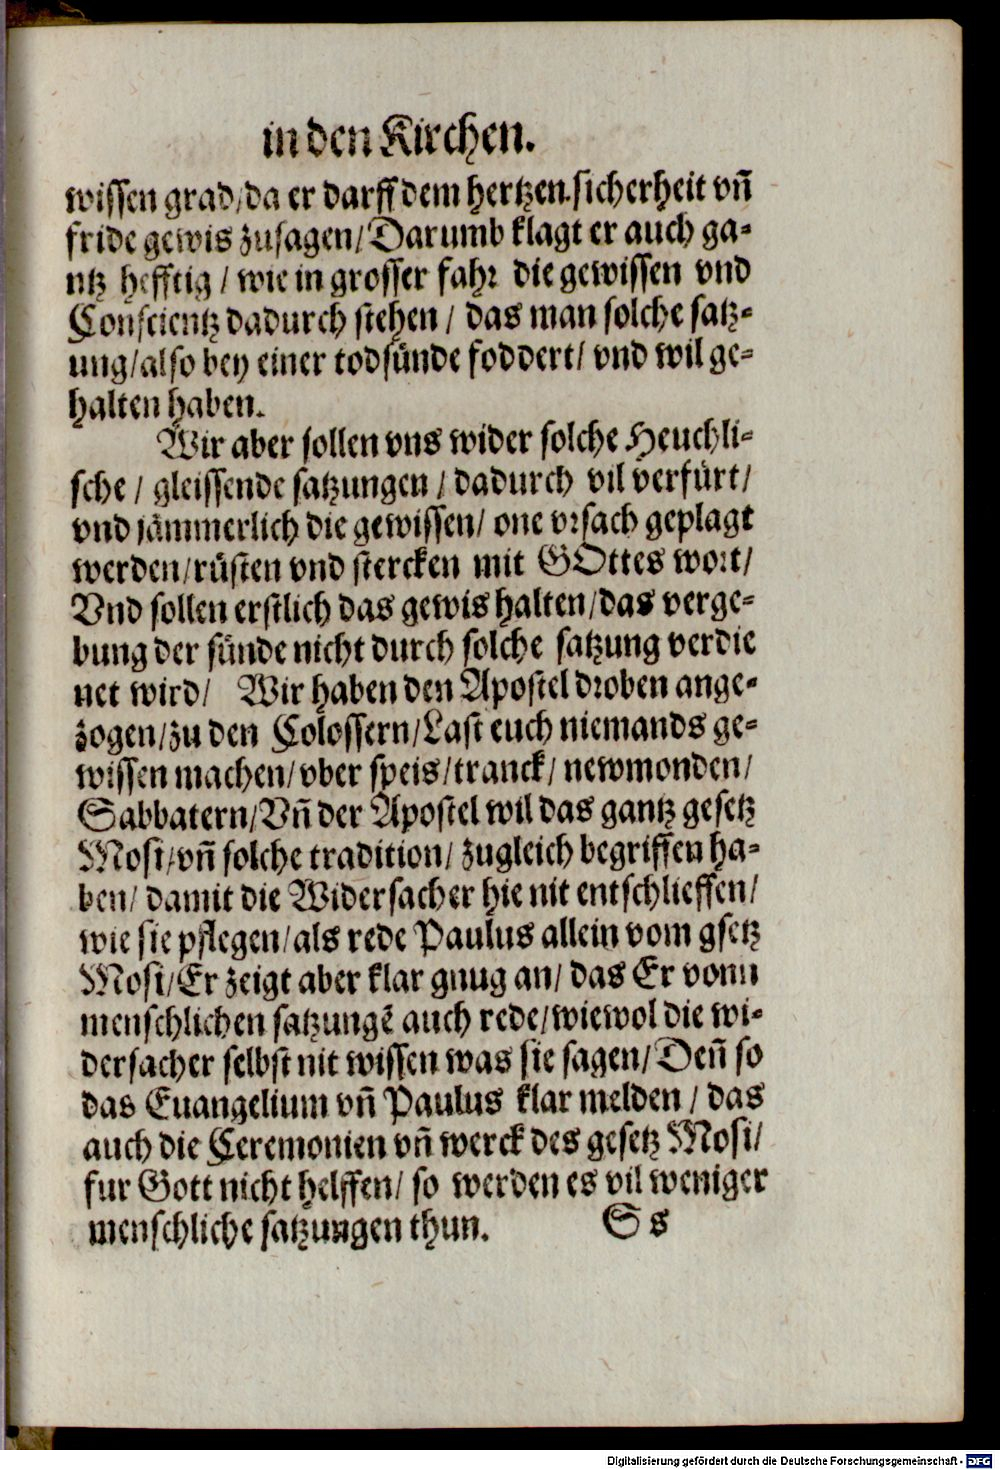 in den Kirchen.
wissen grad/da er darff dem hertzen.sicherheit vñ
fride gewis zusagen/Darumb klagt er auch ga-
ntz hefftig / wie in grosser fahr die gewissen vnd
Conscientz dadurch stehen / das man solche satz-
ung/also bey einer todsünde foddert/ vnd wil ge-
halten haben.
Wir aber sollen vns wider solche Heuchli-
sche / gleissende satzungen / dadurch vil verfürt/
vnd jämmerlich die gewissen/ one vrsach geplagt
werden/rüsten vnd stercken mit GOttes wort/
Vnd sollen erstlich das gewis halten/das verge-
bung der sünde nicht durch solche satzung verdie
net wird/ Wir haben den Apostel droben ange-
zogen/zu den Colossern/Last euch niemands ge-
wissen machen/vber speis/tranck/newmonden/
Sabbatern/Vñ der Apostel wil das gantz gesetz
Mosi/vñ solche tradition/ zugleich begriffen ha-
ben/ damit die Widersacher hie nit entschlieffen/
wie sie pflegen/als rede Paulus allein vom gsetz
Mosi/Er zeigt aber klar gnug an/ das Er vonn
menschlichen satzungẽ auch rede/wiewol die wi-
dersacher selbst nit wissen was sie sagen/Deñ so
das Euangelium vñ Paulus klar melden / das
auch die Ceremonien vñ werck des gesetz Mosi/
fur Gott nicht helffen/ so werden es vil weniger
menschliche satzungen thun. S s
Digitalisierung gefördert durch die Deutsche Forschungsgemeinschaft - DFG